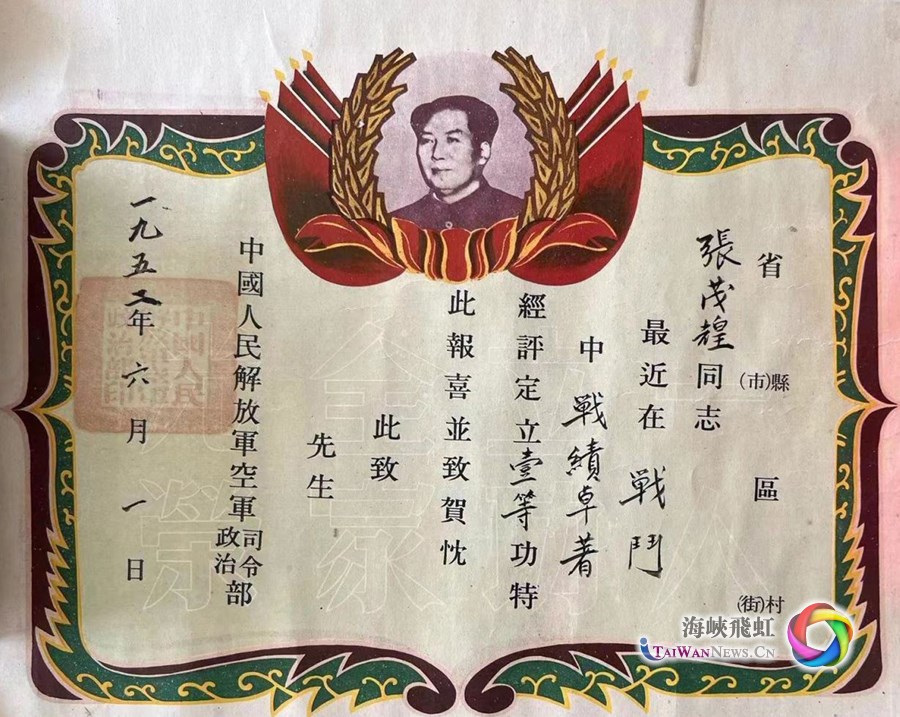 省 (市)縣 區 (街)村
張茂煌同志
最近在 戰鬥
中 戰績卓著
經評定立壹等功特
此報喜並致賀忱
此致
先生
中國人民解放軍空軍司令政治部
一九五二年六月一日
一人立功全家光榮
海峽飛虹
TAIWANNEWS.CN